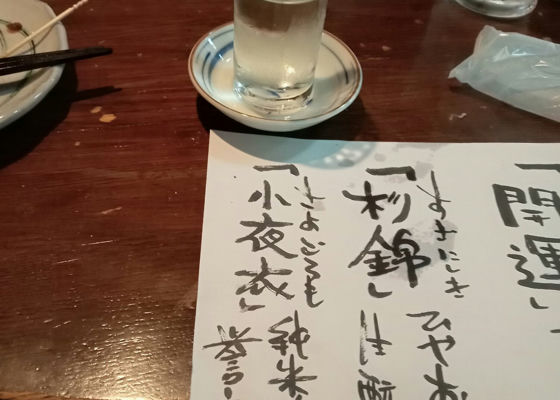 「開運」
すぎにしき ひやお
「杉錦」生酛
さよごろも
「小夜衣」純米
誉富